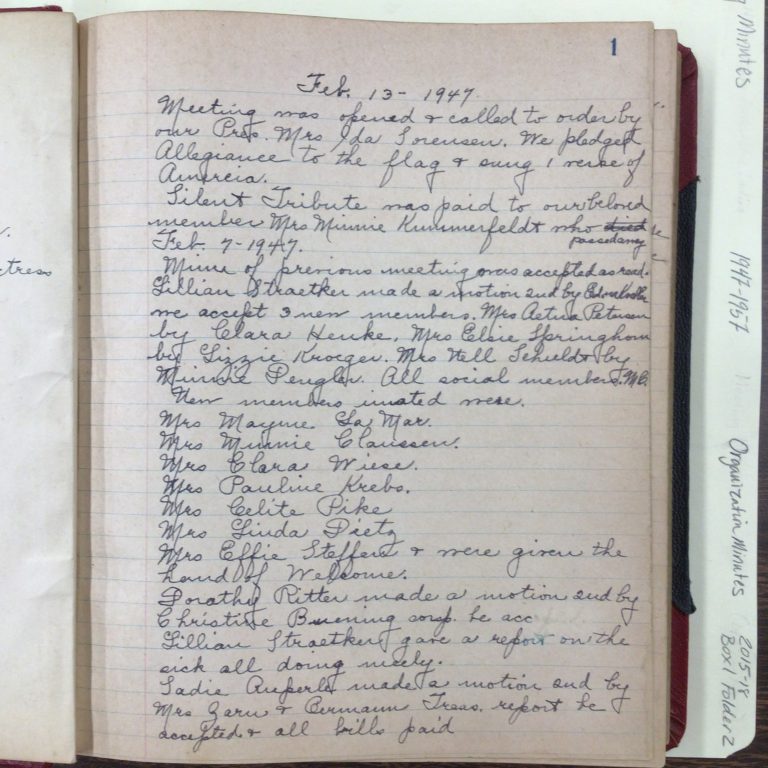 1
Feb. 13- 1947
Meeting was opened & called to order by
our Pres. Mrs Ida Sorensen. We pledged
Allegiance to the flag & sung 1 verse of
Amercia.
Silent Tribute was paid to our beloved
member Mrs Minnie Kummerfeldt who died
passed away
Feb. 7-1947.
Minu of previous meeting was accepted as read.
Lillian Straetker made a motion 2nd by
we accept 3 new members. Mrs Aetna Petersen
by Clara Henke. Mrs Elsie Springhorn
by Lizzie Kroeger. Mrs Nell Schuldt by
Minnie Pengler. All social members. M.C.
New members inated were.
Mrs Mayme La Mar.
Mrs Minnie Claussen.
Mrs Clara Wiese.
Mrs Pauline Krebs.
Mrs Celite Pike
Mrs Linda Dietz
Mrs Effie Steffen & were given the
hand of Welcome.
Dorathy Ritter made a motion 2nd by
Christine Buening be acc
Lillian Straetker gave a report on the
sick all doing nicely.
Sadie made a motion 2nd by
Mrs Zarn & Treas. report be
accepted & all bills paid
ctress
Minutes
1947-1957
Organization Minutes
2015-18
Box 1 Folder 2